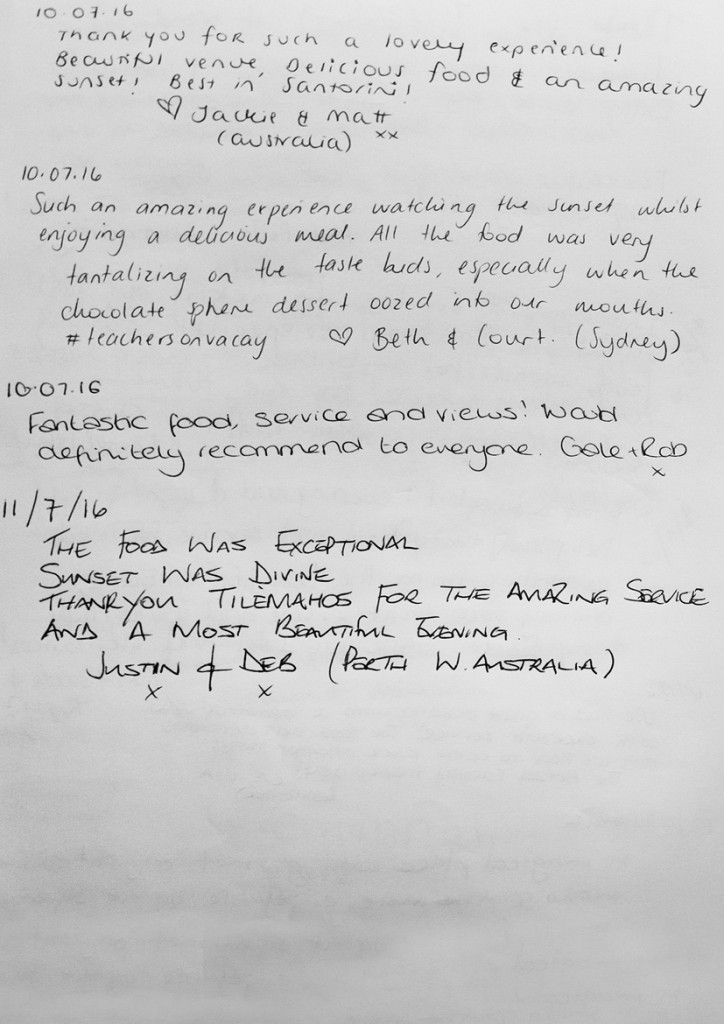 10.07.16
Thank you for such a lovely experience!
Beautiful venue, Delicious food & an amazing
sunset! Best in Santorini!
♡ Jackie & Matt
(Australia) xx
10.07.16
Such an amazing experience watching the sunset whilst
enjoying a delicious meal. All the food was very
tantalizing on the taste buds, especially when the
chocolate sphere dessert oozed into our mouths.
#teachersonvacay ♡ Beth & Court. (Sydney)
10.07.16
Fantastic food, service and views! Would
definitely recommend to everyone. Gale + Rob
x
11/7/16
THE FOOD WAS EXCEPTIONAL
SUNSET WAS DIVINE
THANKYOU TILEMAHOS FOR THE AMAZING SERVICE
AND A MOST BEAUTIFUL EVENING.
JUSTIN & DEB (PERTH W. AUSTRALIA)
x x